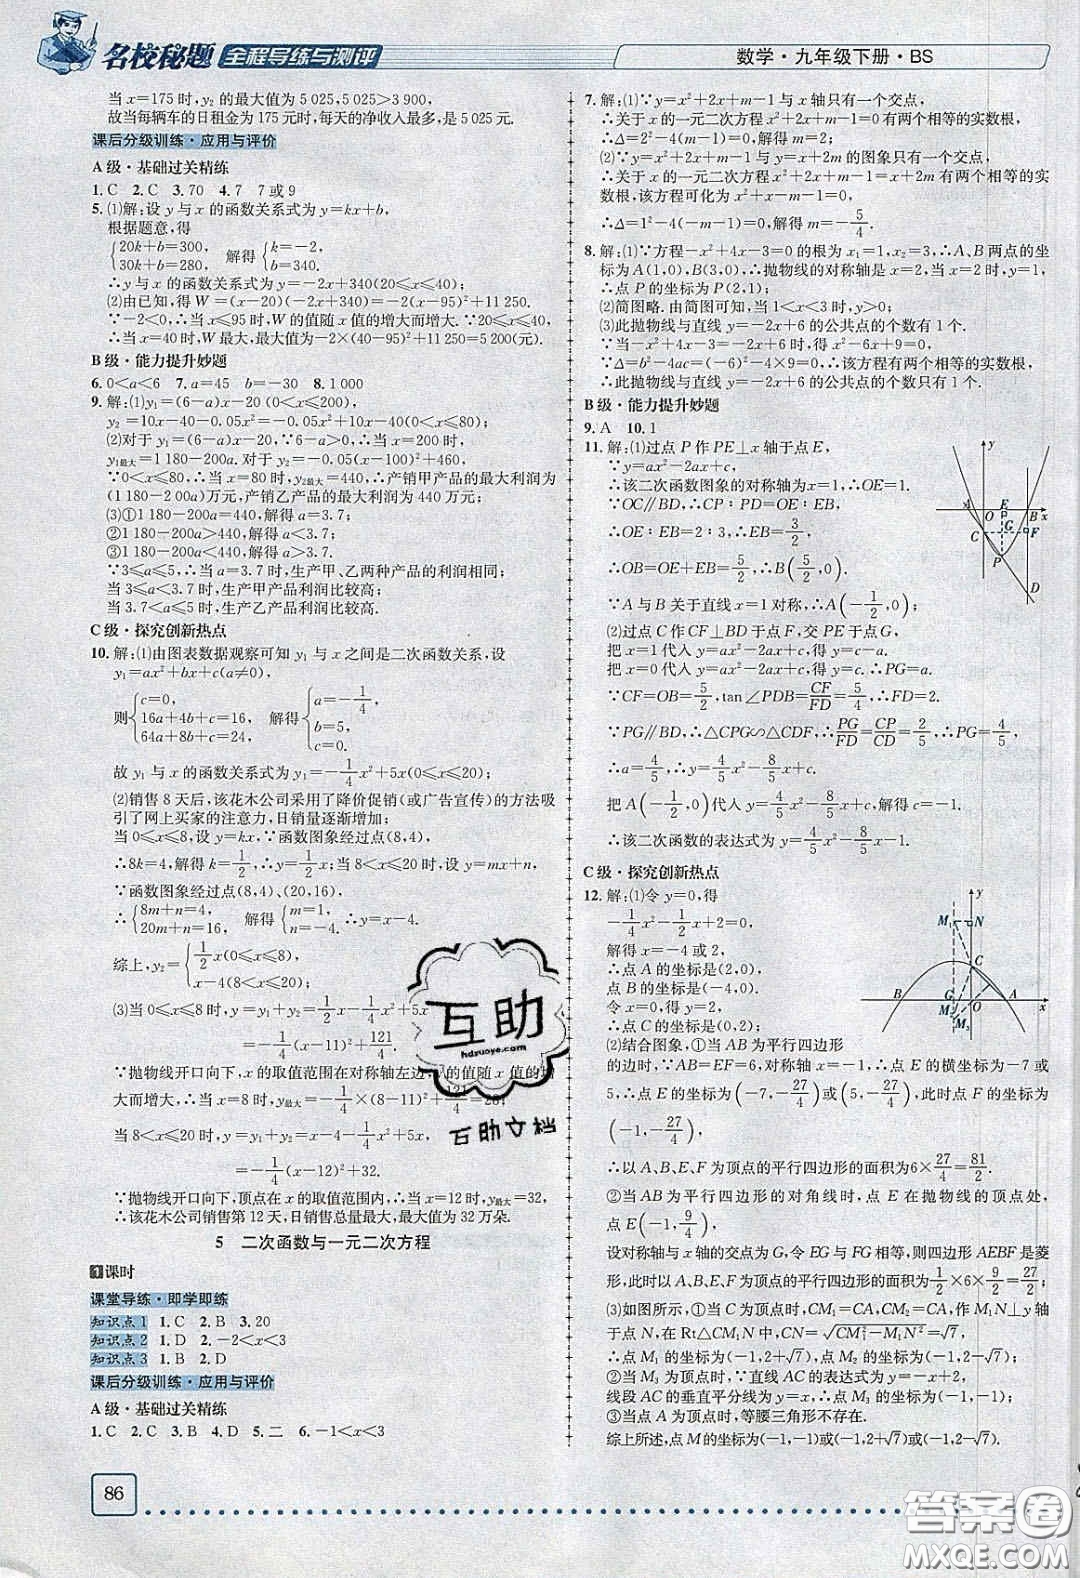 名校秘题 全程导练与测评
数学·九年级下册·BS
当 x=175 时,y₂ 的最大值为 5 025,5 025>3 900,
故当每辆车的日租金为 175 元时,每天的净收入最多,是 5 025 元.
课后分级训练·应用与评价
A 级·基础过关精练
1. C 2. C 3. 70 4. 7 7 或 9
5. (1)解:设 y 与 x 的函数关系式为 y=kx+b,
根据题意,得
{20k+b=300, 30k+b=280, 解得 {k=-2, b=340.
∴y 与 x 的函数关系式为 y=-2x+340(20≤x≤40);
(2)由已知,得 W=(x-20)(-2x+340)=-2(x-95)²+11 250.
∵-2<0,∴当 x≤95 时,W 的值随 x 值的增大而增大. ∵20≤x≤40,
∴当 x=40 时,W 最大,最大值为-2×(40-95)²+11 250=5 200(元).
B 级·能力提升妙题
6. 0<a<6 7. a=45 b=-30 8. 1 000
9. 解:(1)y₁=(6-a)x-20 (0<x≤200),
y₂=10x-40-0.05x²=-0.05x²+10x-40(0<x≤80);
(2)对于 y₁=(6-a)x-20,∵6-a>0,∴当 x=200 时,
y₁最大=1 180-200a. 对于 y₂=-0.05(x-100)²+460,
∵0<x≤80,∴当 x=80 时,y₂最大=440,∴产销甲产品的最大利润为
(1 180-200a)万元,产销乙产品的最大利润为 440 万元;
(3)①1 180-200a=440,解得 a=3.7;
②1 180-200a>440,解得 a<3.7;
③1 180-200a<440,解得 a>3.7.
∵3≤a≤5,∴当 a=3.7 时,生产甲、乙两种产品的利润相同;
当 3≤a<3.7 时,生产甲产品利润比较高;
当 3.7<a≤5 时,生产乙产品利润比较高.
C 级·探究创新热点
10. 解:(1)由图表数据观察可知 y₁ 与 x 之间是二次函数关系,设
y₁=ax²+bx+c(a≠0),
则{c=0, 16a+4b+c=16, 64a+8b+c=24, 解得{a=-1/4, b=5, c=0.
故 y₁ 与 x 的函数关系式为 y=-1/4x²+5x(0≤x≤20);
(2)销售 8 天后,该花木公司采用了降价促销(或广告宣传)的方法吸
引了网上买家的注意力,日销量逐渐增加;
当 0≤x≤8,设 y=kx,∵函数图象经过点(8,4),
∴8k=4,解得 k=1/2,∴y=1/2x;当 8<x≤20 时,设 y=mx+n,
∵函数图象经过点(8,4)、(20,16),
∴{8m+n=4, 20m+n=16, 解得{m=1, n=-4. ∴y=x-4.
综上,y₂={1/2x(0≤x≤8), x-4(8<x≤20);
(3)当 0≤x≤8 时,y=y₁+y₂=1/2x-1/4x²+5x
=-1/4(x-11)²+121/4.
∵抛物线开口向下,x 的取值范围在对称轴左
随 x 值的增
大而增大,∴当 x=8 时,y最大=-1/4×(8-11)²+
当 8<x≤20 时,y=y₁+y₂=x-4-1/4x²+5x
=-1/4(x-12)²+32.
∵抛物线开口向下,顶点在 x 的取值范围内,∴当 x=12 时,y最大=32,
∴该花木公司销售第 12 天,日销售总量最大,最大值为 32 万朵.
5 二次函数与一元二次方程
1课时
课堂导练·即学即练
知识点1 1. C 2. B 3. 20
知识点2 1. D 2. -2<x<3
知识点3 1. B 2. D
课后分级训练·应用与评价
A 级·基础过关精练
1. C 2. A 3. B 4. D 5. 二 6. -1<x<3
7. 解:(1)∵y=x²+2x+m-1 与 x 轴只有一个交点,
∴关于 x 的一元二次方程 x²+2x+m-1=0 有两个相等的实数根,
∴Δ=2²-4(m-1)=0,解得 m=2;
(2)∵y=x+2m 与 y=x²+2x+m-1 的图象只有一个交点,
∴关于 x 的一元二次方程 x²+2x+m-1=x+2m 有两个相等的实
数根,该方程可化为 x²+x-m-1=0,
∴Δ=1²-4(-m-1)=0,解得 m=-5/4.
8. 解:(1)∵方程-x²+4x-3=0 的根为 x₁=1,x₂=3,∴A、B 两点的坐
标为 A(1,0),B(3,0),∴抛物线的对称轴是 x=2,当 x=2 时,y=1,
∴点 P 的坐标为 P(2,1);
(2)简图略. 由简图可知,当 1<x<3 时,y>0;
(3)此抛物线与直线 y=-2x+6 的公共点的个数有 1 个.
∵-x²+4x-3=-2x+6,∴x²-6x+9=0,
∵Δ=b²-4ac=(-6)²-4×9=0,∴该方程有两个相等的实数根,
∴此抛物线与直线 y=-2x+6 的公共点的个数只有 1 个.
B 级·能力提升妙题
9. A 10. 1
11. 解:(1)过点 P 作 PE⊥x 轴于点 E,
∵y=ax²-2ax+c,
∴该二次函数图象的对称轴为 x=1,∴OE=1.
∵OC∥BD,∴CP∶PD=OE∶EB,
∴OE∶EB=2∶3,∴EB=3/2,
∴OB=OE+EB=5/2,∴B(5/2,0);
∵A 与 B 关于直线 x=1 对称,∴A(-1/2,0);
(2)过点 C 作 CF⊥BD 于点 F,交 PE 于点 G,
把 x=1 代入 y=ax²-2ax+c,得 y=c-a,
把 x=0 代入 y=ax²-2ax+c,得 y=c. ∴PG=a.
∵CF=OB=5/2,tan∠PDB=CF/FD=5/4,∴FD=2.
∵PG∥BD,∴△CPG∽△CDF,∴PG/FD=CP/CD=2/5,∴PG=4/5,
∴a=4/5,∴y=4/5x²-8/5x+c,
把 A(-1/2,0)代入 y=4/5x²-8/5x+c,解得 c=-1,
∴该二次函数的表达式为 y=4/5x²-8/5x-1.
y
A E B O G x C F P D
C 级·探究创新热点
12. 解:(1)令 y=0,得
-1/4x²-1/2x+2=0,
解得 x=-4 或 2,
∴点 A 的坐标是(2,0),
点 B 的坐标是(-4,0).
令 x=0,得 y=2,
∴点 C 的坐标是(0,2);
y M₁ N C B G O A x M₂ M₃
(2)结合图象,①当 AB 为平行四边形
的边时,∵AB=EF=6,对称轴 x=-1,∴点 E 的横坐标为-7 或
5,∴点 E 的坐标为(-7,-27/4)或(5,-27/4),此时点 F 的坐标为
(-1,-27/4),
∴以 A、B、E、F 为顶点的平行四边形的面积为 6×27/4=81/2.
②当 AB 为平行四边形的对角线时,点 E 在抛物线的顶点处,
点 E(-1,9/4),
设对称轴与 x 轴的交点为 G,令 EG 与 FG 相等,则四边形 AEBF 是菱
形,∴以 A、B、E、F 为顶点的平行四边形的面积为 1/2×6×9/2=27/2;
(3)如图所示,①当 C 为顶点时,CM₁=CA,CM₂=CA,作 M₁N⊥y 轴
于点 N,在 Rt△CM₁N 中,CN=√(CM₁²-M₁N²)=√7,
∴点 M₁ 的坐标为(-1,2+√7),点 M₂ 的坐标为(-1,2-√7);
②当 M₃ 为顶点时,∵直线 AC 的表达式为 y=-x+2,
线段 AC 的垂直平分线为 y=x,∴点 M₃ 的坐标为(-1,-1);
③当点 A 为顶点时,等腰三角形不存在.
综上所述,点 M 的坐标为(-1,-1)或(-1,2+√7)或(-1,2-√7).
互助
hdzuoye.com
互助文档
86
答案圈
MXQE.COM